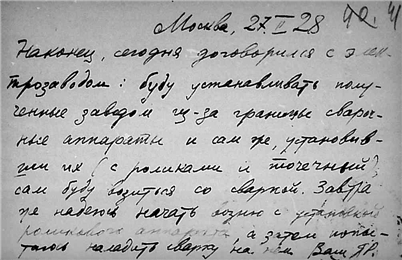 Москва, 27 II 28 40. 41
Наконец, сегодня договорился с элек-
трозаводом: буду устанавливать полу-
ченные заводом из-за границы свароч-
ные аппараты и сам же, установив-
ши их (с роликами и точечный),
сам буду возиться со сваркой. Завтра
же надеюсь начать возню с установкой
роликового аппарата, а затем попы-
таюсь наладить сварку на нем Ваш ЯР.